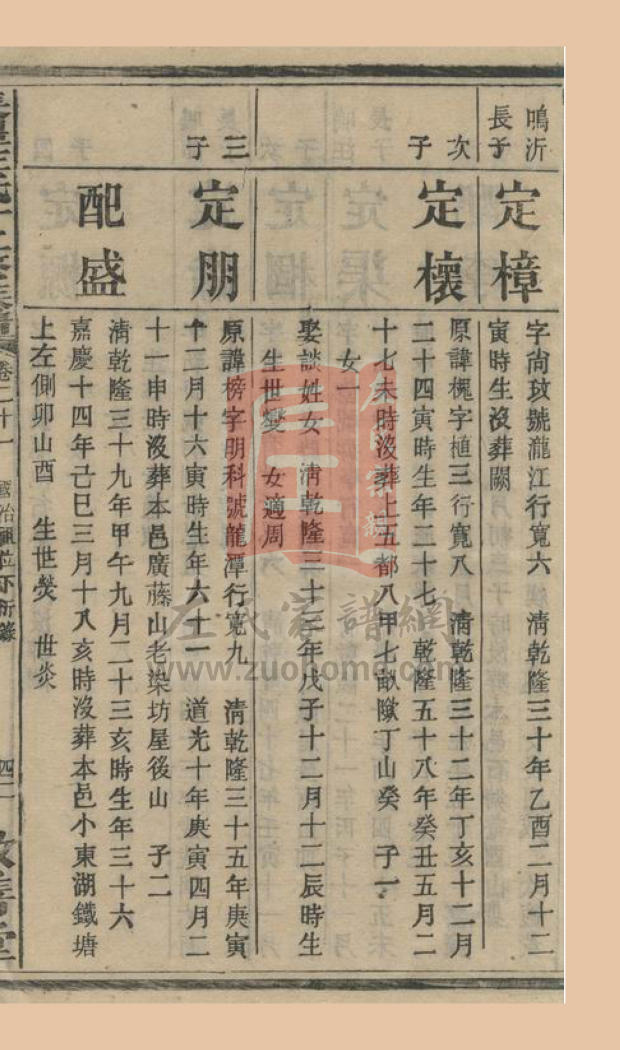 鳴沂
長子
定樟
字尚玫號瀧江行寬六 清乾隆三十年乙酉二月十二
寅時生沒葬闕
次子
定櫰
原諱槐字植三行寬八 清乾隆三十二年丁亥十二月
二十四寅時生年二十七 乾隆五十八年癸丑五月二
十七未時沒葬上五都八甲七畝隞丁山癸 子一
女一
娶談姓女 清乾隆三十三年戊子十二月十二辰時生
生世燮 女適周
三子
定朋
原諱榜字明科號龍潭行寬九 清乾隆三十五年庚寅
十二月十六寅時生年六十一 道光十年庚寅四月二
十一申時沒葬本邑廣藤山老染坊屋後山 子二
配盛
清乾隆三十九年甲午九月二十三亥時生年三十六
嘉慶十四年己巳三月十八亥時沒葬本邑小東湖鐵塘
上左側卯山酉 生世熒 世炎
卷二十一
四二
左氏家譜網
www.zuohome.com